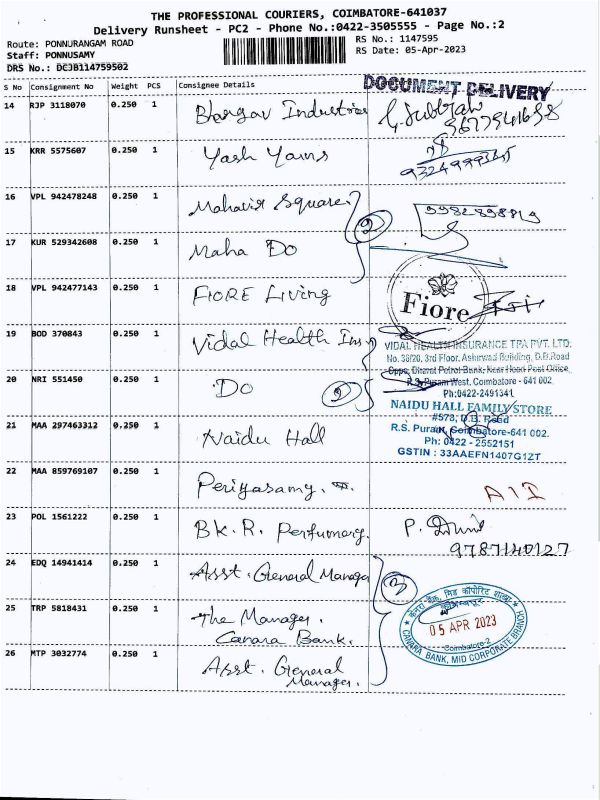 THE PROFESSIONAL COURIERS, COIMBATORE-641037
Delivery Runsheet - PC2 - Phone No.:0422-3505555 - Page No.:2
Route: PONNURANGAM ROAD
RS No.: 1147595
Staff: PONNUSAMY
RS Date: 05-Apr-2023
DRS No.: DCJB114759502
S No Consignment No Weight PCS Consignee Details
DOCUMENT DELIVERY
14 RJP 3118070 0.250 1 Bhargav Industries
15 KRR 5575607 0.250 1 Yash Yarns
16 VPL 942478248 0.250 1 Mahavir Square.
17 KUR 529342608 0.250 1 Maha Do
2
18 VPL 942477143 0.250 1 FIORE Living
Fiore
19 BOD 370843 0.250 1 Vidal Health Ins
VIDAL HEALTH INSURANCE TPA PVT. LTD.
No. 38/20, 3rd Floor, Ashirwad Building, D.B.Road
Opps, Bharat Petrol Bunk, Near Head Post Office,
R.S. Puram West, Coimbatore - 641 002.
Ph:0422-2491341
20 NRI 551450 0.250 1 Do
2
NAIDU HALL FAMILY STORE
#573, D.B. Road
R.S. Puram, Coimbatore-641 002.
Ph: 0422 - 2552151
GSTIN : 33AAEFN1407G1ZT
21 MAA 297463312 0.250 1 Naidu Hall
22 MAA 859769107 0.250 1 Periyasamy.
23 POL 1561222 0.250 1 BK. R. Perfumery.
9787140127
24 EDQ 14941414 0.250 1 Asst. General Manager
3
25 TRP 5818431 0.250 1 The Manager.
Canara Bank.
05 APR 2023
Coimbatore-2
CANARA BANK, MID CORPORATE BRANCH
26 MTP 3032774 0.250 1 Asst. General
Manager.